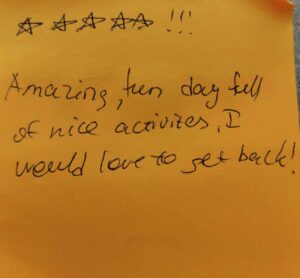 ☆☆☆☆☆ !!!
Amazing, fun day full
of nice activites, I
would love to get back!